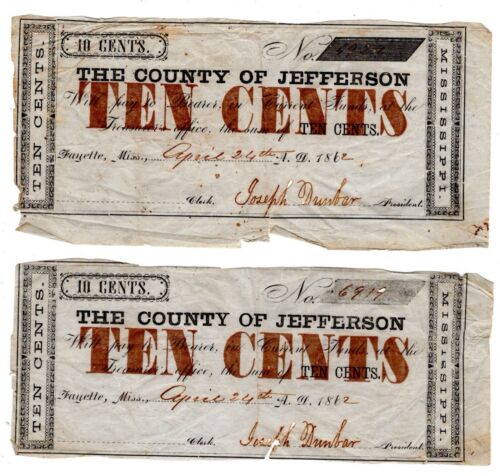 10 CENTS.
No.
THE COUNTY OF JEFFERSON
Will pay to Bearer, in Current Funds, at the
TEN CENTS
Treasurer's office, the sum of TEN CENTS.
Fayette, Miss., April 24th A. D. 1862
Clerk. Joseph Dunbar President.
TEN CENTS.
MISSISSIPPI.
10 CENTS.
No. 6919
THE COUNTY OF JEFFERSON
Will pay to Bearer, in Current Funds at the
TEN CENTS
Treasurer's office, the sum of TEN CENTS.
Fayette, Miss., April 24th A. D. 1862
Clerk. Joseph Dunbar President.
TEN CENTS.
MISSISSIPPI.